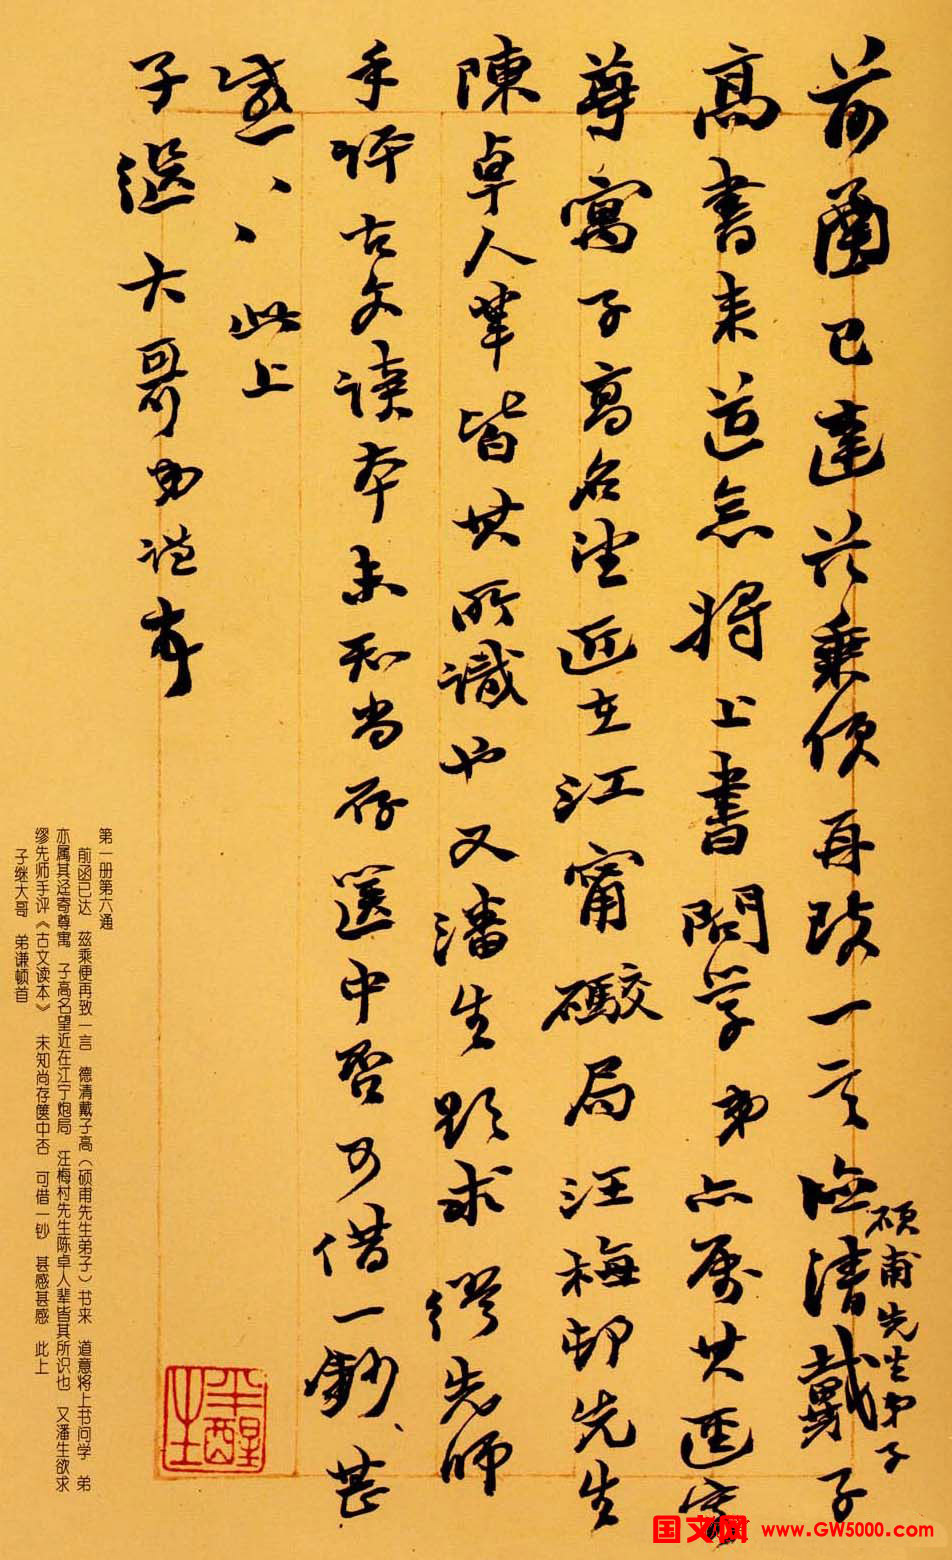 前圅已達茲乘便再致一言德清戴子
碩甫先生弟子
高書来道意將上書問学弟亦属其迳寄
尊寓子高名望近在江甯礮局汪梅邨先生
陳卓人輩皆其所識也又潘生欲求繆先師
手评古文读本未知尚存箧中否可借一鈔、甚
感〻此上
子继大哥弟谦顿首
第一册第六通
前函已达 茲乘便再致一言 德清戴子高(硕甫先生弟子)书来 道意将上书问学 弟
亦属其迳寄尊寓 子高名望近在江宁炮局 汪梅村先生陈卓人辈皆其所识也 又潘生欲求
缪先师手评《古文读本》 未知尚存箧中否 可借一钞 甚感甚感 此上
子继大哥 弟谦顿首
国文网 www.GW5000.com